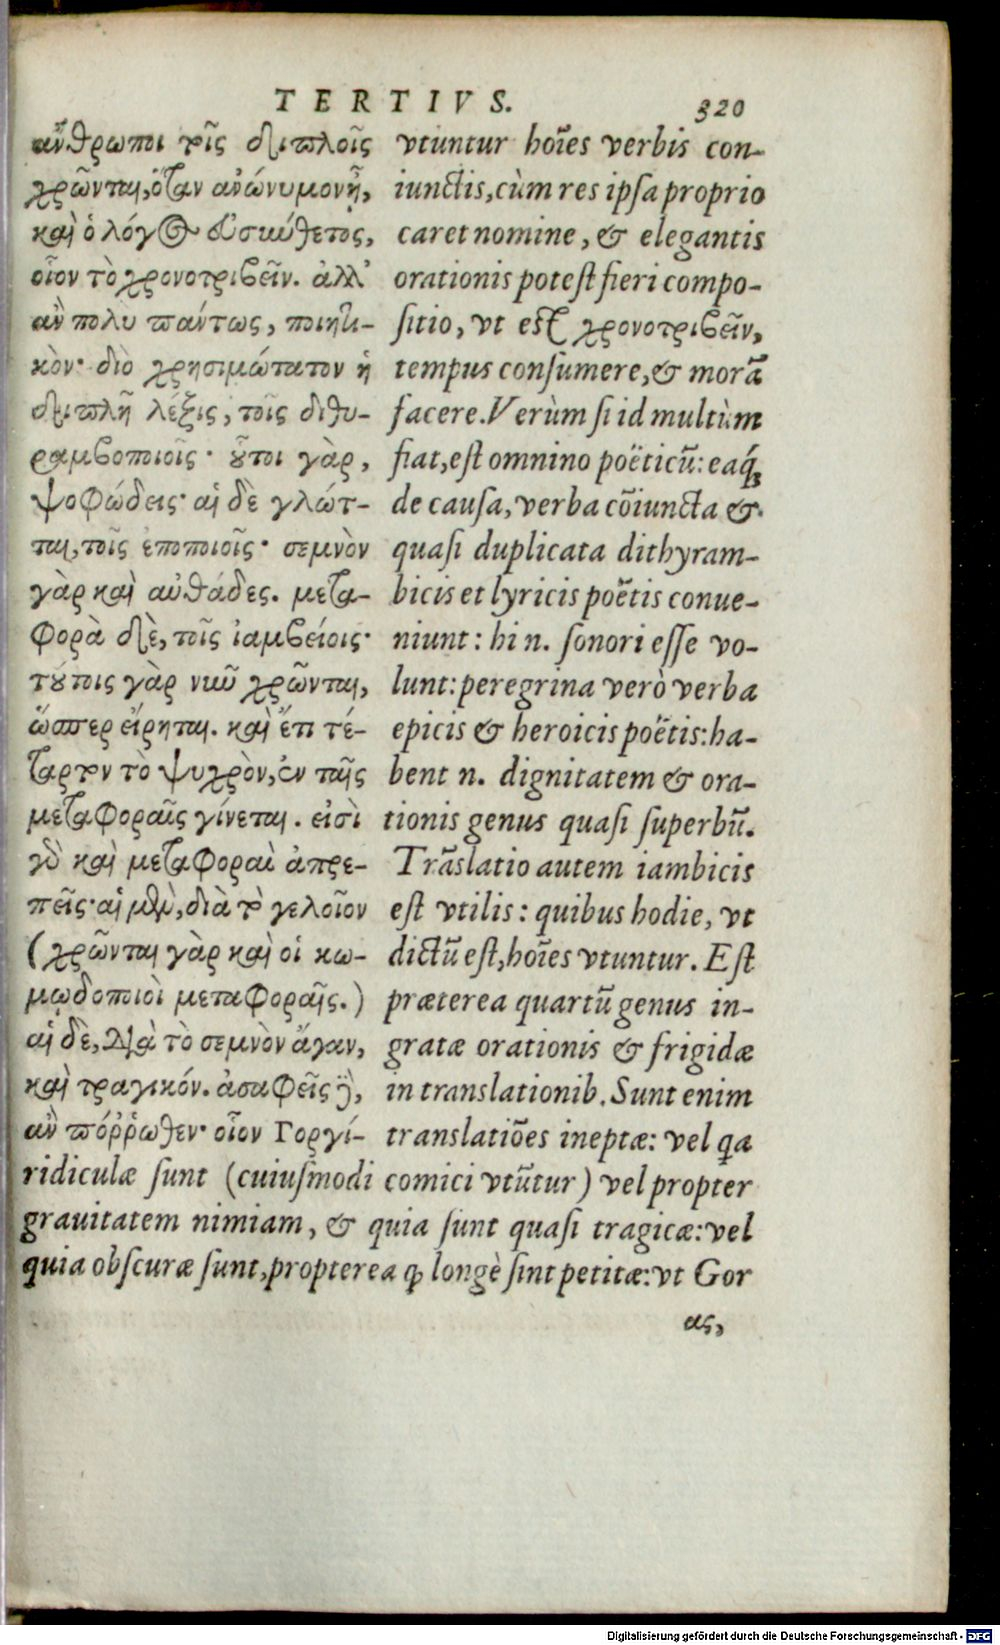 TERTIVS. 320
ἄνθρωποι τοῖς διπλοῖς
χρῶνται, ὅταν ἀνώνυμον ᾖ,
καὶ ὁ λόγος εὐσύνθετος,
οἷον τὸ χρονοτριβεῖν. ἀλλ’
ἂν πολὺ πάντως, ποιητι-
κὸν· διὸ χρησιμώτατον ἡ
διπλῆ λέξις, τοῖς διθυ-
ραμβοποιοῖς· οὗτοι γὰρ,
ψοφώδεις· αἱ δὲ γλώτ-
ται, τοῖς ἐποποιοῖς· σεμνὸν
γὰρ καὶ αὐθάδες. μετα-
φορὰ δὲ, τοῖς ἰαμβείοις·
τούτοις γὰρ νῦν χρῶνται,
ὥσπερ εἴρηται. καὶ ἔτι τέ-
ταρτον τὸ ψυχρὸν, ἐν ταῖς
μεταφοραῖς γίνεται. εἰσὶ
γὰρ καὶ μεταφοραὶ ἀπρε-
πεῖς· αἱ μὲν, διὰ τὸ γελοῖον
(χρῶνται γὰρ καὶ οἱ κω-
μῳδοποιοὶ μεταφοραῖς.)
αἱ δὲ, διὰ τὸ σεμνὸν ἄγαν,
καὶ τραγικόν. ἀσαφεῖς δὲ,
ἂν πόῤῥωθεν· οἷον Γοργί-
vtuntur hoı̃es verbis con-
iunctis, cùm res ipsa proprio
caret nomine, & elegantis
orationis potest fieri compo-
sitio, vt est χρονοτριβεῖν,
tempus consumere, & morã
facere. Verùm si id multùm
fiat, est omnino poëticũ: eaq́;
de causa, verba cõiuncta &
quasi duplicata dithyram-
bicis et lyricis poëtis conue-
niunt: hi n. sonori esse vo-
lunt: peregrina verò verba
epicis & heroicis poëtis: ha-
bent n. dignitatem & ora-
tionis genus quasi superbũ.
Trãslatio autem iambicis
est vtilis: quibus hodie, vt
dictũ est, hoı̃es vtuntur. Est
præterea quartũ genus in-
gratæ orationis & frigidæ
in translationib. Sunt enim
translatiões ineptæ: vel qa
ridiculæ sunt (cuiusmodi comici vtũtur) vel propter
grauitatem nimiam, & quia sunt quasi tragicæ: vel
quia obscuræ sunt, propterea ꝙ longè sint petitæ: vt Gor
ας,
Digitalisierung gefördert durch die Deutsche Forschungsgemeinschaft - DFG